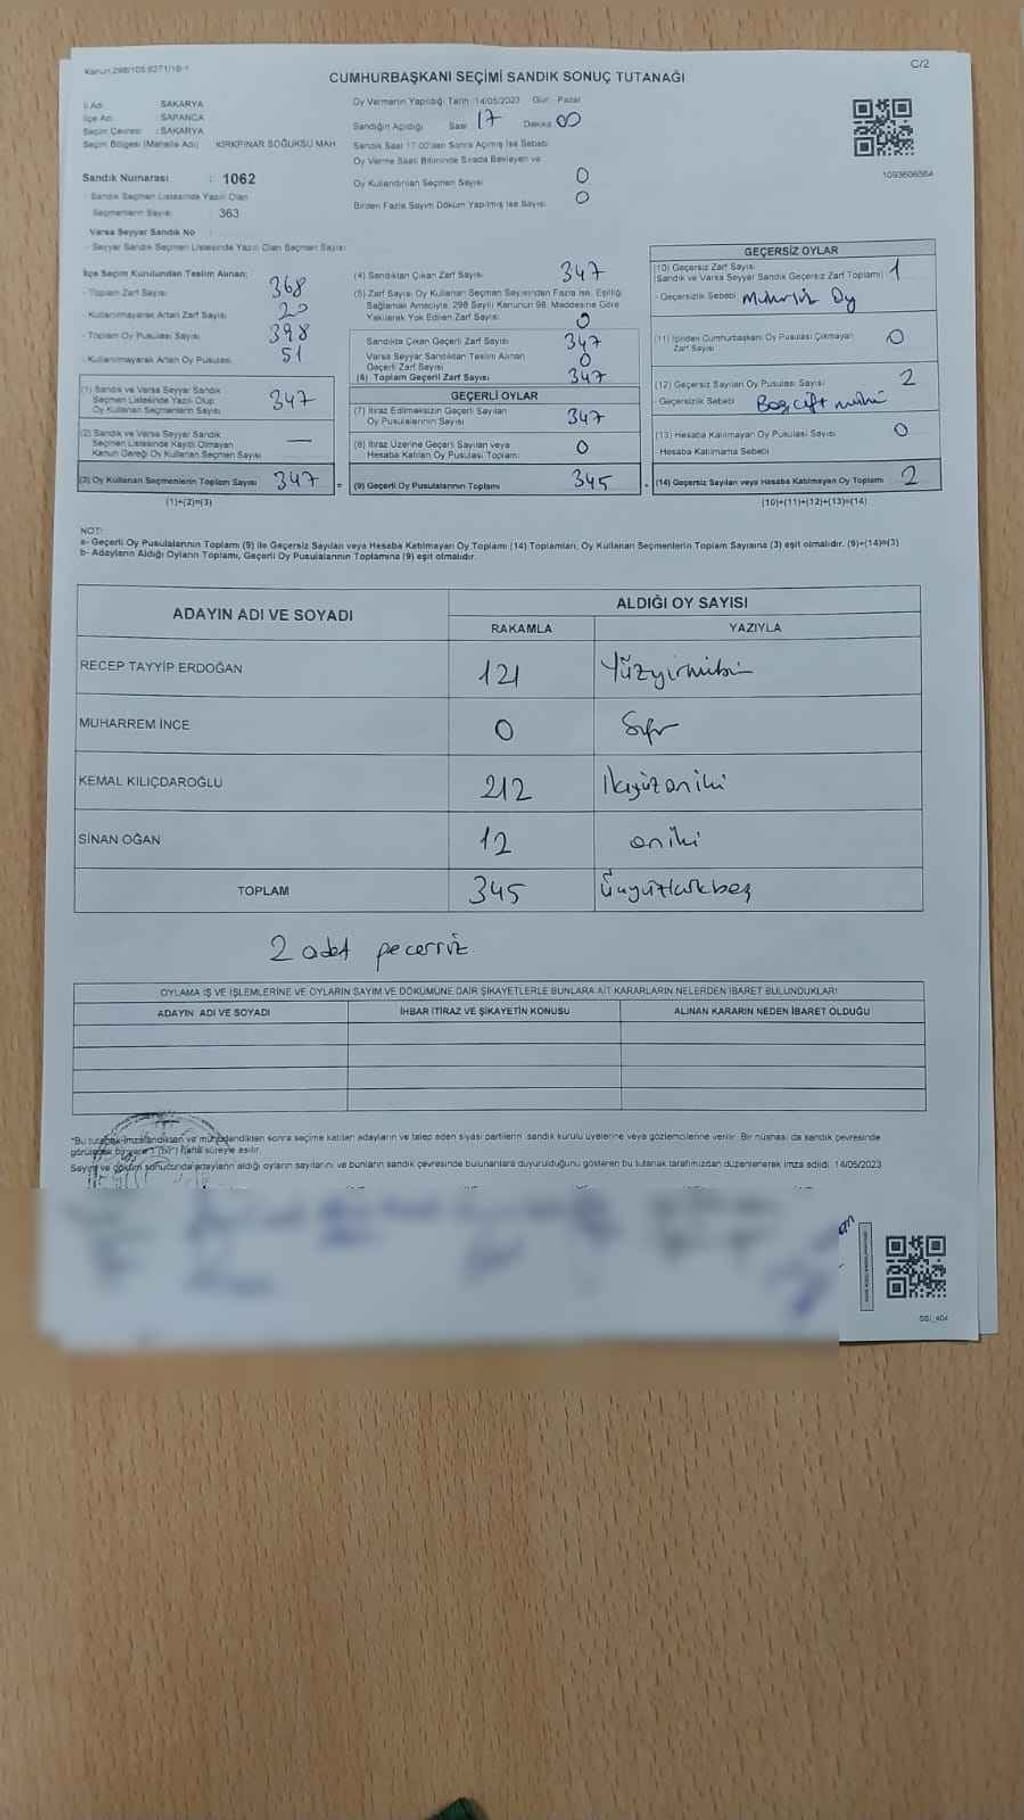 Kanun 298/105.6271/16-1
C/2
CUMHURBAŞKANI SEÇİMİ SANDIK SONUÇ TUTANAĞI
İl Adı : SAKARYA
İlçe Adı : SAPANCA
Seçim Çevresi : SAKARYA
Seçim Bölgesi (Mahalle Adı) KIRKPINAR SOĞUKSU MAH
Sandık Numarası : 1062
Sandık Seçmen Listesinde Yazılı Olan
Seçmenlerin Sayısı : 363
Varsa Seyyar Sandık No
- Seyyar Sandık Seçmen Listesinde Yazılı Olan Seçmen Sayısı
Oy Vermenin Yapıldığı Tarih 14/05/2023 Gün: Pazar
Sandığın Açıldığı Saat 17 Dakika 00
Sandık Saat 17.00'den Sonra Açılmış İse Sebebi
Oy Verme Saati Bitiminde Sırada Bekleyen ve
Oy Kullandırılan Seçmen Sayısı 0
Birden Fazla Sayım Döküm Yapılmış İse Sayısı 0
1093606564
İlçe Seçim Kurulundan Teslim Alınan;
- Toplam Zarf Sayısı 368
- Kullanılmayarak Artan Zarf Sayısı 20
- Toplam Oy Pusulası Sayısı 398
- Kullanılmayarak Artan Oy Pusulası 51
(1) Sandık ve Varsa Seyyar Sandık
Seçmen Listesinde Yazılı Olup
Oy Kullanan Seçmenlerin Sayısı 347
(2) Sandık ve Varsa Seyyar Sandık
Seçmen Listesinde Kayıtlı Olmayan
Kanun Gereği Oy Kullanan Seçmen Sayısı —
(3) Oy Kullanan Seçmenlerin Toplam Sayısı 347
(1)+(2)=(3)
(4) Sandıktan Çıkan Zarf Sayısı 347
(5) Zarf Sayısı Oy Kullanan Seçmen Sayısından Fazla ise, Eşitliği
Sağlamak Amacıyla, 298 Sayılı Kanunun 98. Maddesine Göre
Yakılarak Yok Edilen Zarf Sayısı 0
Sandıkta Çıkan Geçerli Zarf Sayısı 347
Varsa Seyyar Sandıktan Teslim Alınan
Geçerli Zarf Sayısı 0
(6) Toplam Geçerli Zarf Sayısı 347
GEÇERLİ OYLAR
(7) İtiraz Edilmeksizin Geçerli Sayılan
Oy Pusulalarının Sayısı 347
(8) İtiraz Üzerine Geçerli Sayılan veya
Hesaba Katılan Oy Pusulası Toplamı 0
(9) Geçerli Oy Pusulalarının Toplamı 345
GEÇERSİZ OYLAR
(10) Geçersiz Zarf Sayısı
(Sandık ve Varsa Seyyar Sandık Geçersiz Zarf Toplamı) 1
- Geçersizlik Sebebi Mühürsüz Oy
(11) İçinden Cumhurbaşkanı Oy Pusulası Çıkmayan
Zarf Sayısı 0
(12) Geçersiz Sayılan Oy Pusulası Sayısı 2
- Geçersizlik Sebebi Boş, çift mühür
(13) Hesaba Katılmayan Oy Pusulası Sayısı 0
Hesaba Katılmama Sebebi
(14) Geçersiz Sayılan veya Hesaba Katılmayan Oy Toplamı 2
(10)+(11)+(12)+(13)=(14)
NOT:
a- Geçerli Oy Pusulalarının Toplamı (9) ile Geçersiz Sayılan veya Hesaba Katılmayan Oy Toplamı (14) Toplamları, Oy Kullanan Seçmenlerin Toplam Sayısına (3) eşit olmalıdır. (9)+(14)=(3)
b- Adayların Aldığı Oyların Toplamı, Geçerli Oy Pusulalarının Toplamına (9) eşit olmalıdır.
ADAYIN ADI VE SOYADI ALDIĞI OY SAYISI
RAKAMLA YAZIYLA
RECEP TAYYİP ERDOĞAN 121 Yüzyirmibir
MUHARREM İNCE 0 Sıfır
KEMAL KILIÇDAROĞLU 212 İkiyüzoniki
SİNAN OĞAN 12 oniki
TOPLAM 345 Üçyüzkırkbeş
2 adet geçersiz.
OYLAMA İŞ VE İŞLEMLERİNE VE OYLARIN SAYIM VE DÖKÜMÜNE DAİR ŞİKAYETLERLE BUNLARA AİT KARARLARIN NELERDEN İBARET BULUNDUKLARI
ADAYIN ADI VE SOYADI İHBAR İTİRAZ VE ŞİKAYETİN KONUSU ALINAN KARARIN NEDEN İBARET OLDUĞU
*Bu tutanak imzalandıktan ve mühürlendikten sonra seçime katılan adayların ve talep eden siyasi partilerin sandık kurulu üyelerine veya gözlemcilerine verilir. Bir nüshası da sandık çevresinde
görülecek bir yere 1 (bir) hafta süreyle asılır.
Sayım ve döküm sonucunda adayların aldığı oyların sayılarını ve bunların sandık çevresinde bulunanlara duyurulduğunu gösteren bu tutanak tarafımızdan düzenlenerek imza edildi. 14/05/2023
SSI_404